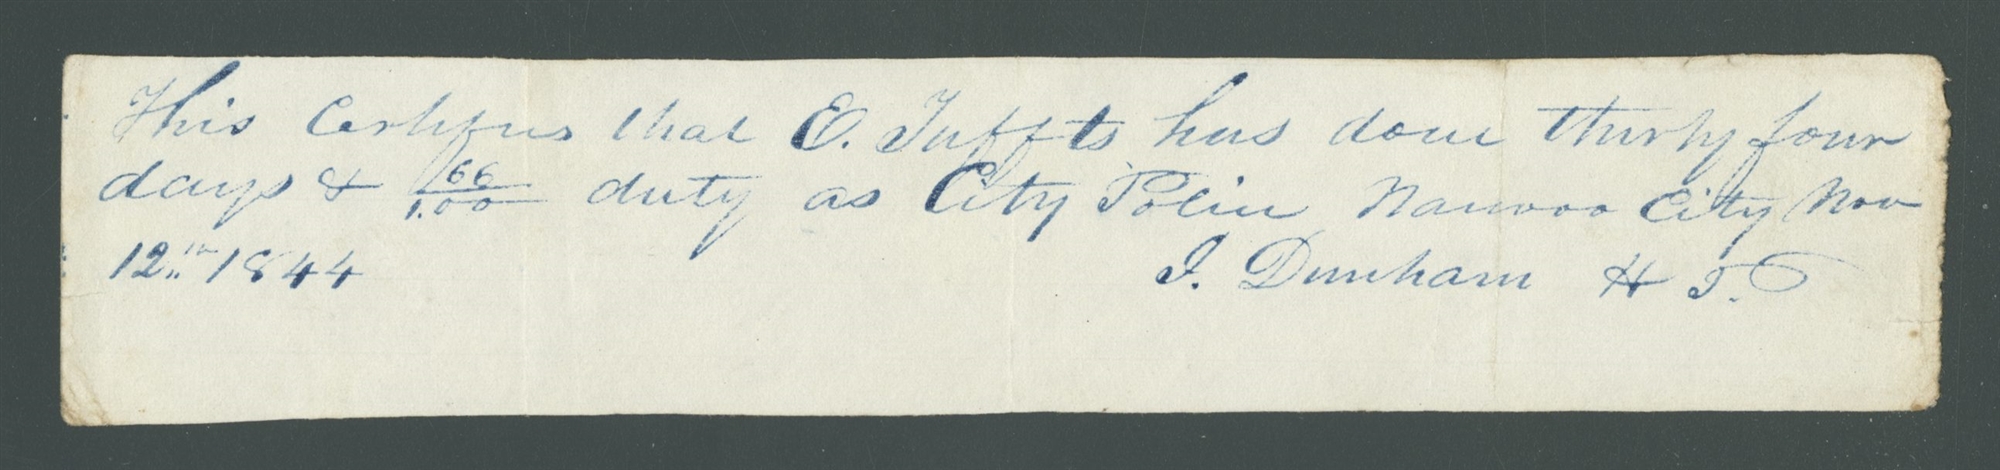 This Certifies that E. Tuffts has done thirty four
days & 66/1.00 duty as City Police Nauvoo City Nov
12th 1844 J. Dunham H. T.